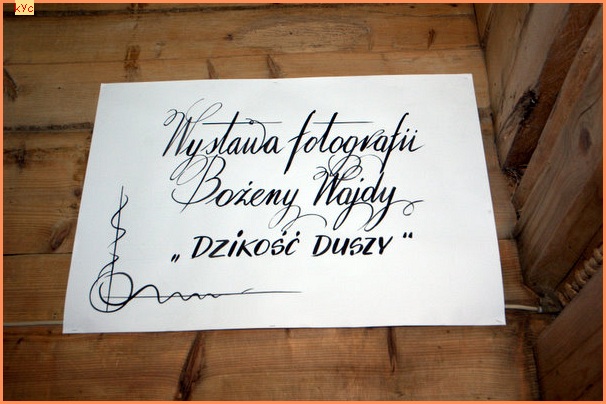 kyc
Wystawa fotografii
Bożeny Wajdy
„DZIKOŚĆ DUSZY“